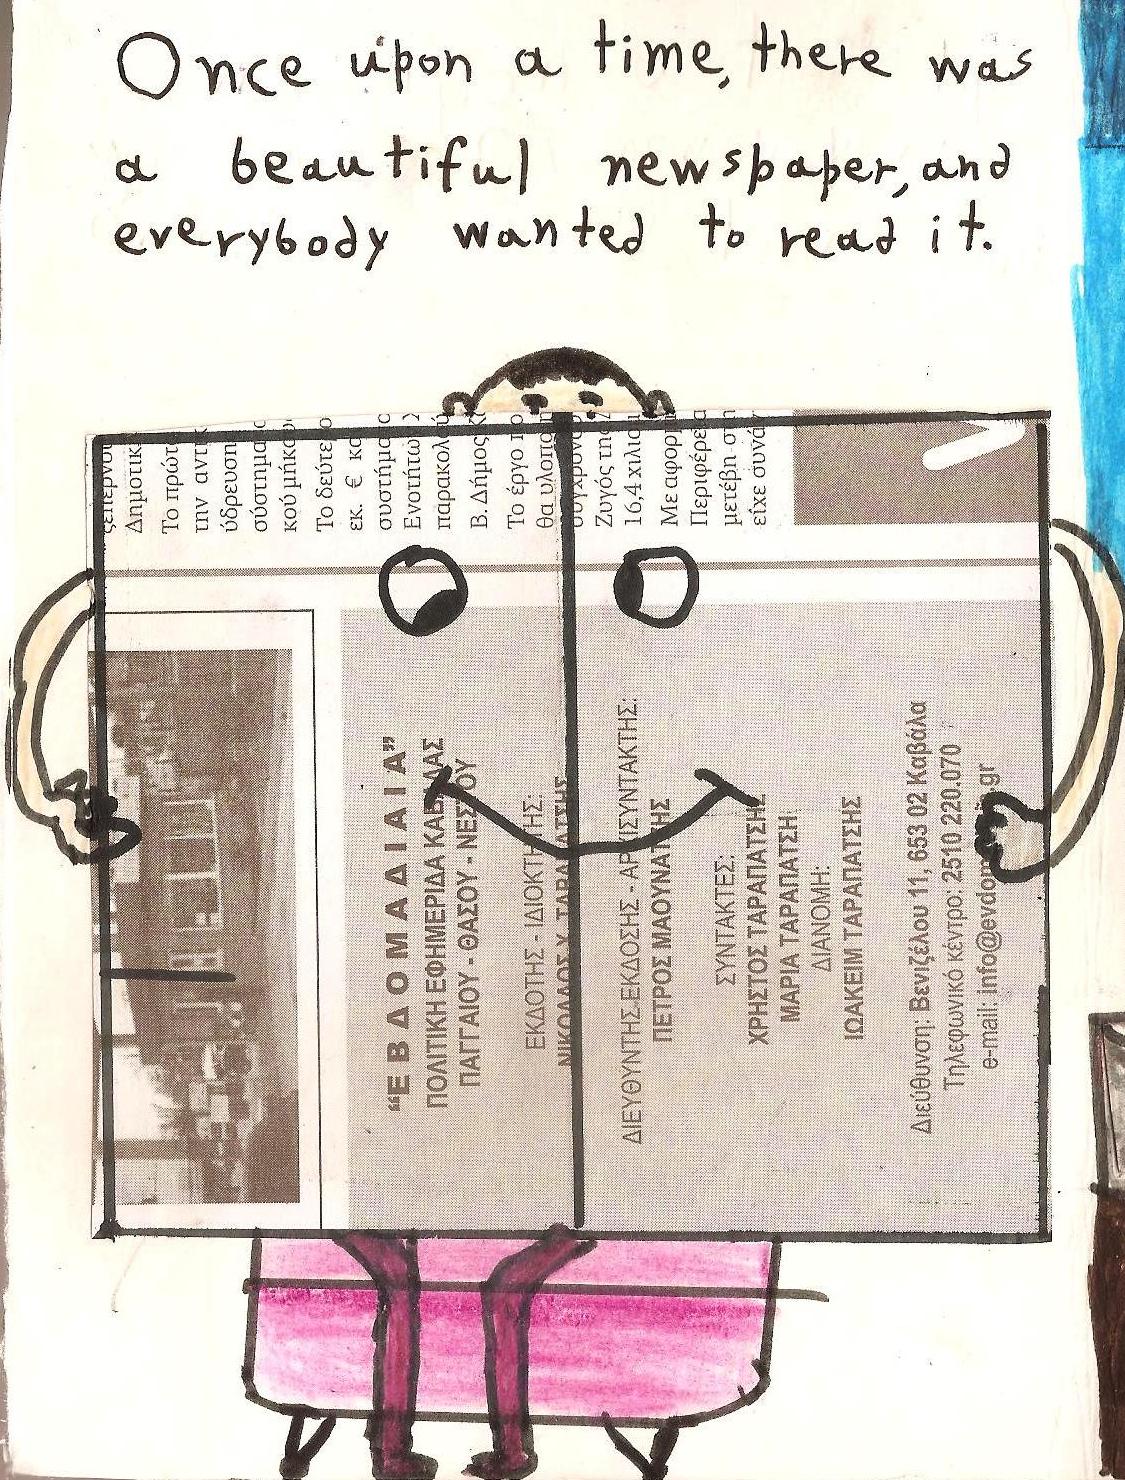 Once upon a time, there was
a beautiful newspaper, and
everybody wanted to read it.
Δημοτικ
Το πρώτ
την αντι
ύδρευση
σύστημα
κού μήκ
Το δεύτε
εκ. € κα
συστήμα
Ενοτήτω
παρακολ
Β. Δήμος
Το έργο
θα υλοπ
Ζυγός της
16,4 χιλιο
Με αφορμ
Περιφέρεια
μετέβη στ
είχε συνά
“ΕΒΔΟΜΑΔΙΑΙΑ”
ΠΟΛΙΤΙΚΗ ΕΦΗΜΕΡΙΔΑ ΚΑΒΑΛΑΣ
ΠΑΓΓΑΙΟΥ - ΘΑΣΟΥ - ΝΕΣΤΟΥ
ΕΚΔΟΤΗΣ - ΙΔΙΟΚΤΗΤΗΣ:
ΝΙΚΟΛΑΟΣ Χ. ΤΑΡΑΠΑΤΣΗΣ
ΔΙΕΥΘΥΝΤΗΣ ΕΚΔΟΣΗΣ - ΑΡΧΙΣΥΝΤΑΚΤΗΣ:
ΠΕΤΡΟΣ ΜΑΟΥΝΑΤΗΣ
ΣΥΝΤΑΚΤΕΣ:
ΧΡΗΣΤΟΣ ΤΑΡΑΠΑΤΣΗΣ
ΜΑΡΙΑ ΤΑΡΑΠΑΤΣΗ
ΔΙΑΝΟΜΗ:
ΙΩΑΚΕΙΜ ΤΑΡΑΠΑΤΣΗΣ
Διεύθυνση: Βενιζέλου 11, 653 02 Καβάλα
Τηλεφωνικό κέντρο: 2510 220.070
e-mail: